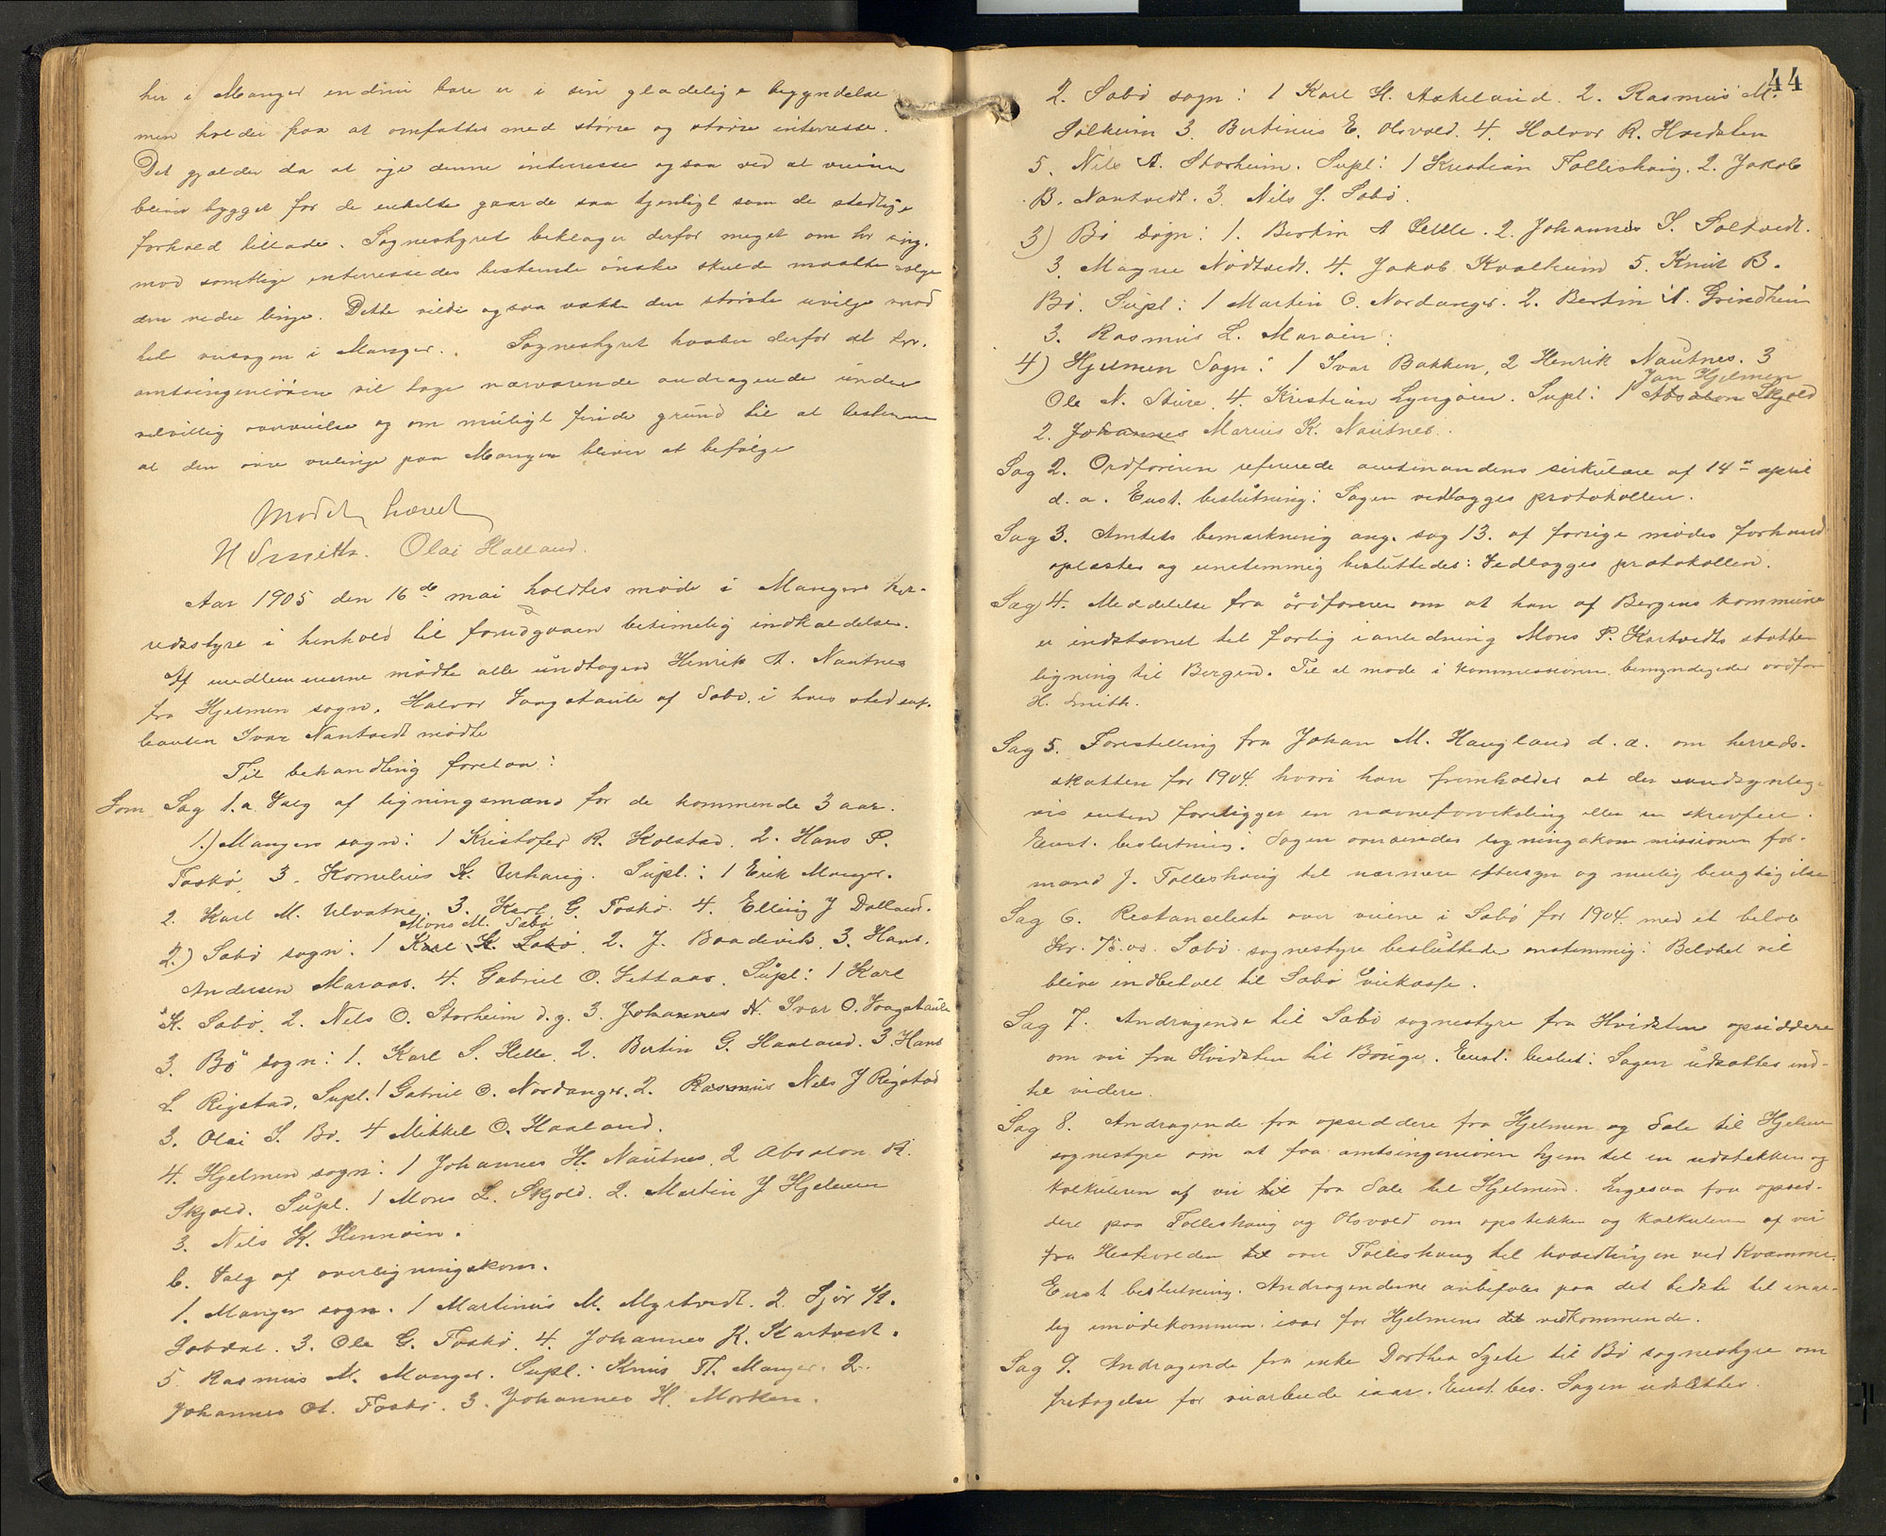 her i Manger endnu bare er i sin glædelige begyndelse
men holder paa at omfattes med større og større interesse.
Det gjælder da at øge denne interesse ogsaa ved at veiene
bliver bygget for de enkelte gaarde saa tjenligt som de stedlige
forhold tillader. Sognestyret beklager derfor meget om hr ing.
mod samtlige interessedes bestemte ønske skulde maatte vælge
den nedre linje. Dette vilde ogsaa vække den største uvilje mod
hel veisagen i Manger. Sognestyret haaber derfor at hr.
amtsingeniøren vil tage nærværende andragende under
velvillig overveielse og om muligt finde grund til at bestemme
at den øvre veilinje paa Manger bliver at befølge
Mødet hævet
H Smith. Olai Halland.
Aar 1905 den 16de mai holdtes møde i Mangers her-
redsstyre i henhold til forudgaaen betimelig indkaldelse.
Af medlemmerne mødte alle undtagen Henrik A. Nautnes
fra Hjelmen sogn, Halvor Vaagstaule af Sæbø, i hvis sted sup-
leanten Ivar Nantvedt mødte
Til behandling foretoa:
Som Sag 1.a Valg af ligningsmænd for de kommende 3 aar.
1.) Mangers sogn: 1 Kristofer R. Holstad. 2. Hans P.
Toskø 3. Kornelius K. Urhaug. Supl.: 1 Erik Manger.
2. Karl M. Ulvatne. 3. Karl G. Toskø. 4. Elling J Dalland.
Mons M. Sæbø
2.) Sæbø sogn: 1 Karl K. Sæbø 2. J. Baadsvik 3. Hans
Andersen Maraas. 4. Gabriel O. Vettaas. Supl: 1 Karl
K. Sæbø. 2. Nils O. Storheim d.y. 3. Johannes N. Ivar O. Vaagstaule
3. Bø sogn: 1. Karl S. Helle. 2. Bertin G. Haaland. 3. Hans
L Rigstad. Supl. 1 Gabriel O. Nordanger. 2. Rasmus Nils J Rigstad
3. Olai S. Bø. 4 Mikkel O. Haaland.
4. Hjelmen sogn: 1 Johannes H. Nautnes. 2 Absalon A.
Skjold. Supl. 1 Mons L. Skjold. 2. Martin J Hjelmen
3. Nils K. Hennøen.
b. Valg af overligningskom.
1. Manger sogn. 1 Martinus M. Myrtvedt. 2. Sjør K.
Sæbdal. 3. Ole G. Toskø. 4. Johannes K. Kartvedt.
5 Rasmus M. Manger. Supl: Knut Th. Manger. 2.
Johannes A. Toskø. 3. Johannes H. Morken.
44
2. Sæbø sogn: 1 Karl H. Askeland. 2. Rasmus M.
Solheim 3. Bertinus E. Olsvold. 4. Halvor R. Hvidsten
5. Nils A. Storheim. Supl: 1 Kristian Tolleshaug. 2. Jakob
B. Nantvedt. 3. Nils J. Sæbø.
3) Bø sogn: 1. Bertin A Helle. 2. Johannes S. Soltvedt.
3. Magne Nodtvedt. 4. Jakob Kvalheim 5. Knut B.
Bø. Supl: 1 Martin O. Nordanger. 2. Bertin A. Grindheim
3. Rasmus L. Marøen.
4) Hjelmen Sogn: 1 Ivar Bakken, 2 Henrik Nautnes. 3
Jan Hjelmen
Ole N. Sture. 4. Kristian Lyngøien. Supl: 1 Absalon Skjold
2. Johannes Marius K. Nautnes.
Sag 2. Ordføreren refererede amtmandens sirkulære af 14de april
d. a. Enst. beslutning: Sagen vedlægges protokollen.
Sag 3. Amtets bemærkning ang. sag 13. af forrige mødes forhand
oplæstes og enstemmig besluttedes: Vedlægges protokollen.
Sag 4. Meddelelse fra ordføreren om at han af Bergens kommune
er indstævnet til forlig i anledning Mons P. Kartvedts skatte
ligning til Bergen. Til at møde i kommissionen bemyndigedes ordfør
H. Smith.
Sag 5. Forestilling fra Johan M. Haugland d. a. om herreds-
skatten for 1904 hvori han fremholder at der sandsynlig-
vis enten foreligger en navneforveksling eller en skrivfeil.
Enst. beslutning. Sagen oversendes ligningskommissionens for-
mand J. Tolleshaug til nærmere eftersyn og mulig berigtigelse
Sag 6. Restanceliste over veiene i Sæbø for 1904 med et beløb
Kr. 75.00. Sæbø sognestyre besluttede enstemmig: Beløbet vil
blive indbetalt til Sæbø veikasse.
Sag 7. Andragende til Sæbø sognestyre fra Hvidsten opsiddere
om vei fra Hvidsten til Bauge. Enst: beslut: Sagen udsættes ind-
til videre.
Sag 8. Andragende fra opsiddere fra Hjelmen og Sale til Hjelme
sognestyre om at faa amtsingeniøren hjem til en udstikken og
kalkulere af vei til fra Sale til Hjelmen. Ligesaa fra opsid-
dere paa Tolleshaug og Olsvold om opstikke og kalkulere af vei
fra til over Tolleshaug til hovedveien ved Kvamme.
Enst beslutning. Andragenderne anbefales paa det bedste til snar-
lig imødekommen, især for Hjelmens det vedkommende.
Sag 9. Andragende fra enke Dorthea Sylte til Bø sognestyre om
fritagelse for veiarbeide iaar. Enst. bes. Sagen udsættes.